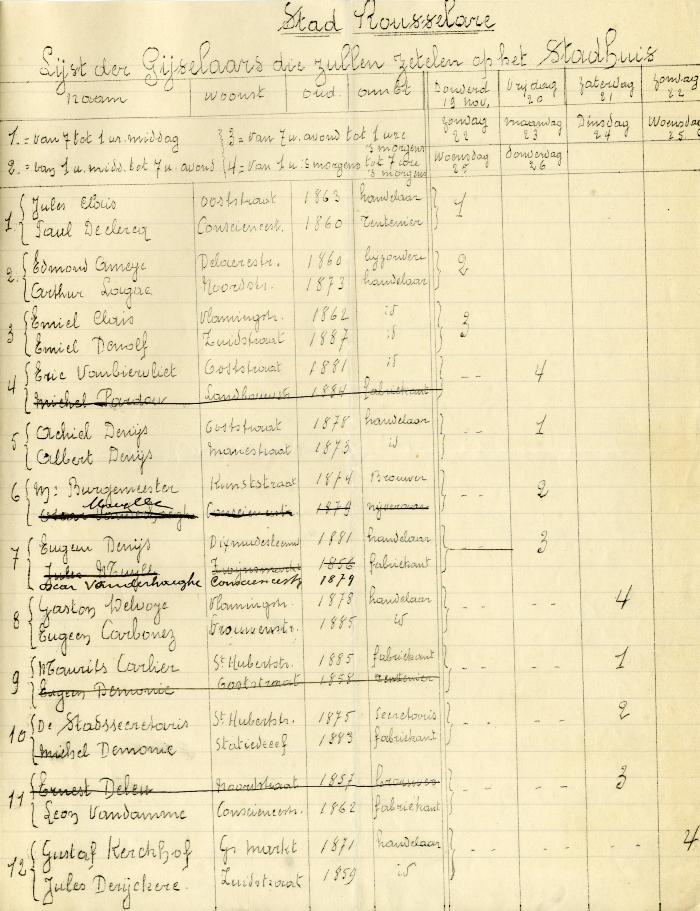 Stad Rousselare
Lijst der Gijselaars die zullen zetelen op het Stadhuis
Naam Woonst oud. ambt Donderd 19 nov. Vrijdag 20 Zaterdag 21 Zondag 22
Zondag 22 maandag 23 Dinsdag 24 Woensdag 25
Woensdag 25 donderdag 26
1. = van 7 tot 1 ur. middag 3 = van 7 u. avond tot 1 ure 's morgens
2. = van 1 u. midd. tot 7 u. avond 4 = van 1 u 's morgens tot 7 ure 's morgens
1. Jules Clais ooststraat 1863 handelaar 1
Paul Declercq Consciencest. 1860 rentenier
2. Edmond Ameye Delaerestr. 1860 byzondere 2
Arthur Lagae Noordstr. 1873 handelaar
3 Emiel Clais Vlamingstr. 1862 id 3
Emiel Denolf Zuidstraat 1887 id
4 Eric Vanbiervliet Ooststraat 1881 id -- 4
Michel Pardou 1884 fabriekant
5 Achiel Denijs Ooststraat 1878 handelaar 1
Albert Denijs 1873 id
6 Mr Burgemeester Kunststraat 1874 Brouwer -- 2
Consciencestr. 1879
7 Eugeen Denijs 1881 handelaar 3
Jules 1856 fabriekant
Oscar Vanderhaeghe Consciencestr 1879
8 Gaston Delvoye Vlamingstr. 1878 handelaar -- -- 4
Eugeen Carbonez Vrouwenstr. 1885 id
9 Maurits Carlier St Hubertstr. 1885 fabriekant -- -- 1
Eugeen Demonie Ooststraat 1858 rentenier
10 De Stadssecretaris St Hubertstr. 1875 Secretaris -- -- 2
Michel Demonie Statiedreef 1883 fabriekant
11 Ernest Deleu Noordstraat 1857 brouwer -- -- 3
Leon Vandamme Consciencestr. 1862 fabriekant
12 Gustaf Kerckhof Gr. Markt 1871 handelaar -- -- -- 4
Jules Derijckere. Zuidstraat 1859 id